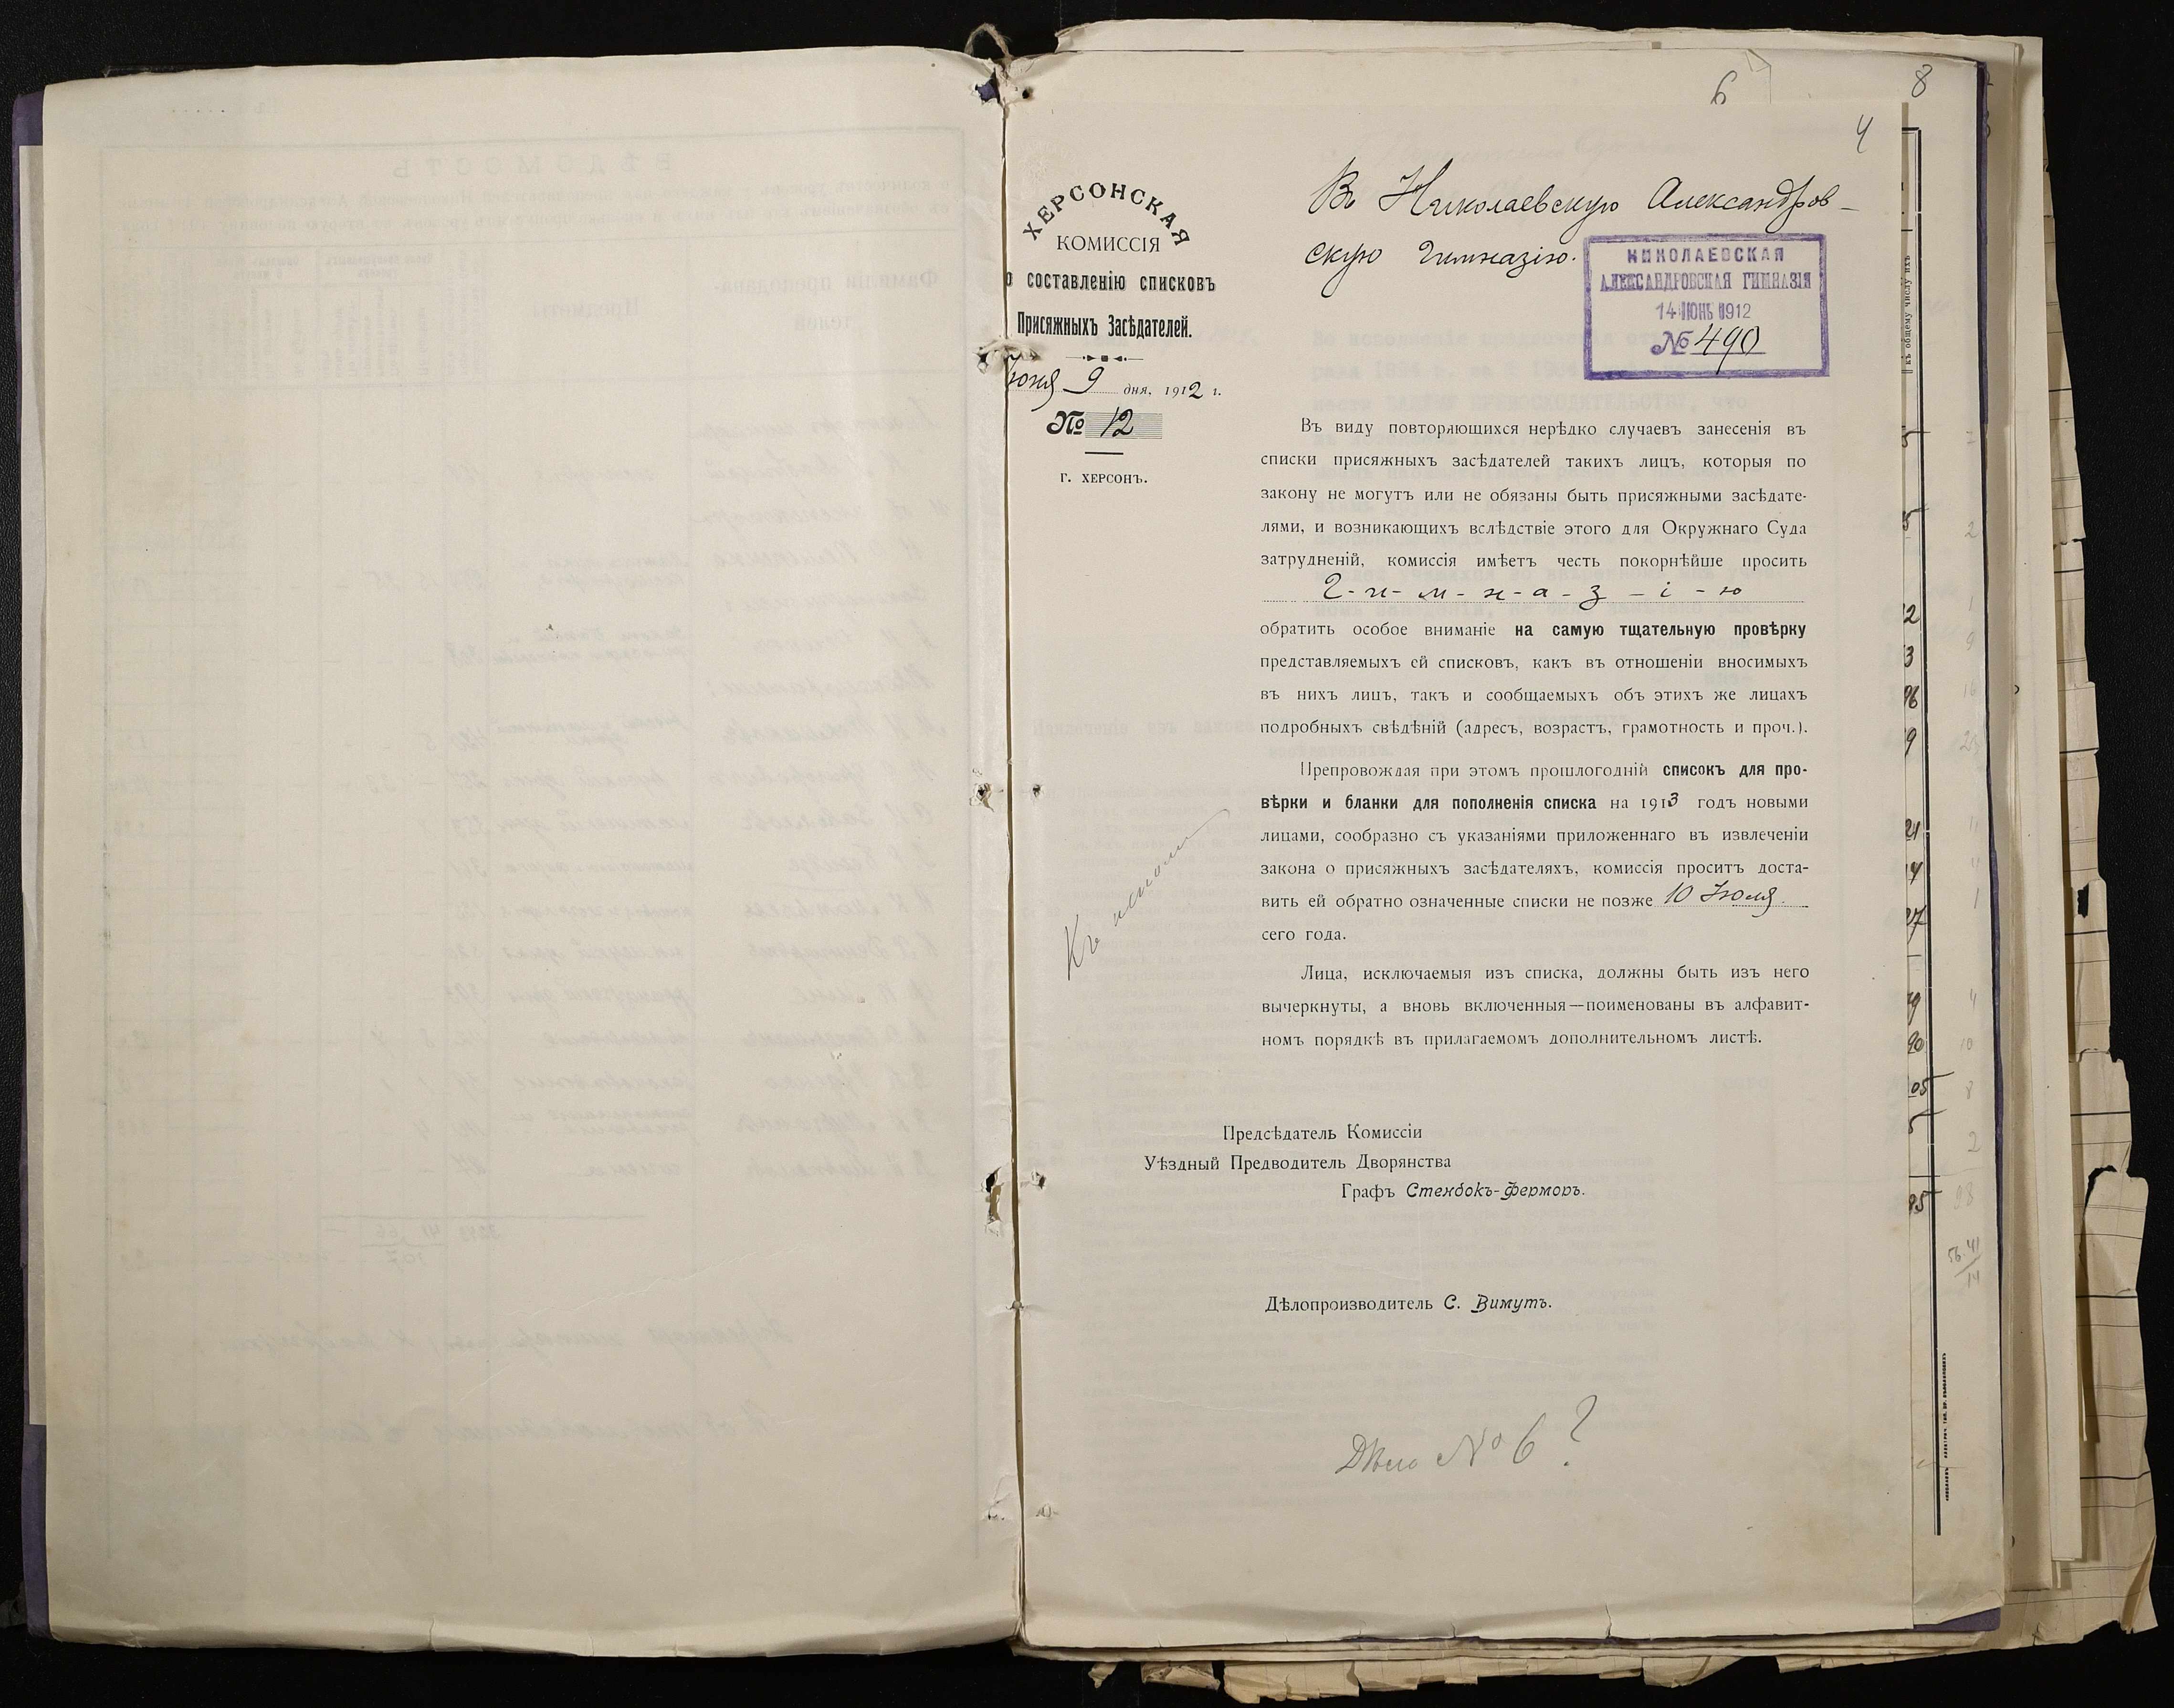 6
8
4
ХЕРСОНСКАЯ
КОМИССІЯ
о составленію списковъ
Присяжныхъ Засѣдателей.
Іюня 9 дня, 1912 г.
№ 12
Г. ХЕРСОНЪ.
Въ Николаевскую Александров-
скую Гимназію.
НИКОЛАЕВСКАЯ
АЛЕКСАНДРОВСКАЯ ГИМНАЗІЯ
14 ІЮНЬ 1912
№ 490
Въ виду повторяющихся нерѣдко случаевъ занесенія въ
списки присяжныхъ засѣдателей такихъ лицъ, которыя по
закону не могутъ или не обязаны быть присяжными засѣдате-
лями, и возникающихъ вслѣдствіе этого для Окружнаго Суда
затрудненій, комиссія имѣетъ честь покорнѣйше просить
Г-и-м-н-а-з-і-ю
обратить особое вниманіе на самую тщательную провѣрку
представляемыхъ ей списковъ, какъ въ отношеніи вносимыхъ
въ нихъ лицъ, такъ и сообщаемыхъ объ этихъ же лицахъ
подробныхъ свѣдѣній (адресъ, возрастъ, грамотность и проч.).
Препровождая при этомъ прошлогодній списокъ для про-
вѣрки и бланки для пополненія списка на 1913 годъ новыми
лицами, сообразно съ указаніями приложеннаго въ извлеченіи
закона о присяжныхъ засѣдателяхъ, комиссія проситъ доста-
вить ей обратно означенные списки не позже 10 Іюля.
сего года.
Лица, исключаемыя изъ списка, должны быть изъ него
вычеркнуты, а вновь включенныя—поименованы въ алфавит-
номъ порядкѣ въ прилагаемомъ дополнительномъ листѣ.
Предсѣдатель Комиссіи
Уѣздный Предводитель Дворянства
Графъ Стенбокъ-Ферморъ.
Дѣлопроизводитель С. Вимутъ.
Дѣло № 6?
къ общему числу ихъ